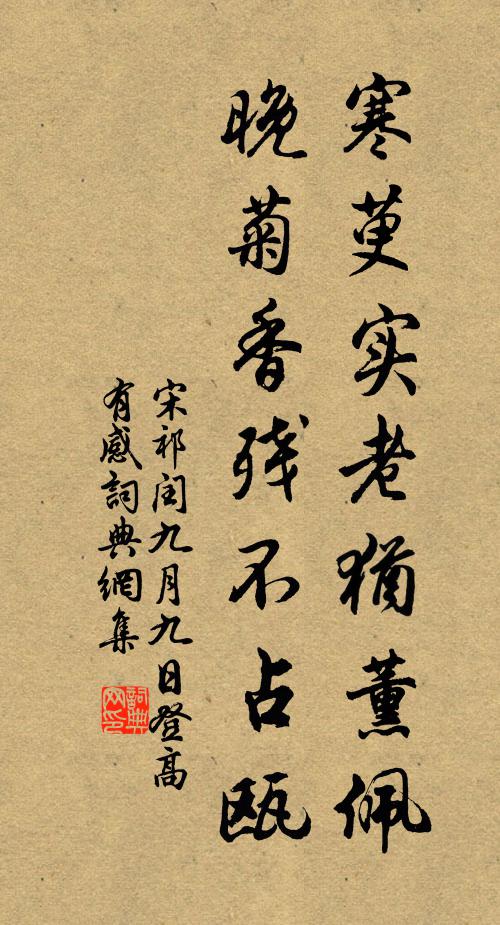 寒萸实老猶薰佩
晚菊香残不占瓯
宋祁闰九月九日登高
有感詞典網集
詞典
网印